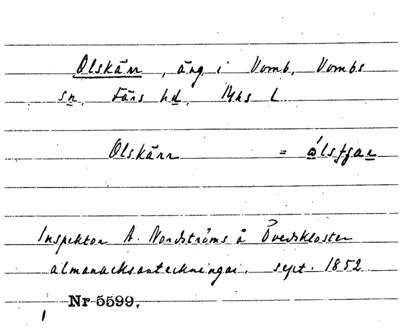 Olskärr, äng i Vomb, Vombs
sn. Färs hd. Mhs L.
Olskärr =
Inspektor A. Nordströms å Övedskloster
almanacksanteckningar. sept. 1852
Nr 5599.